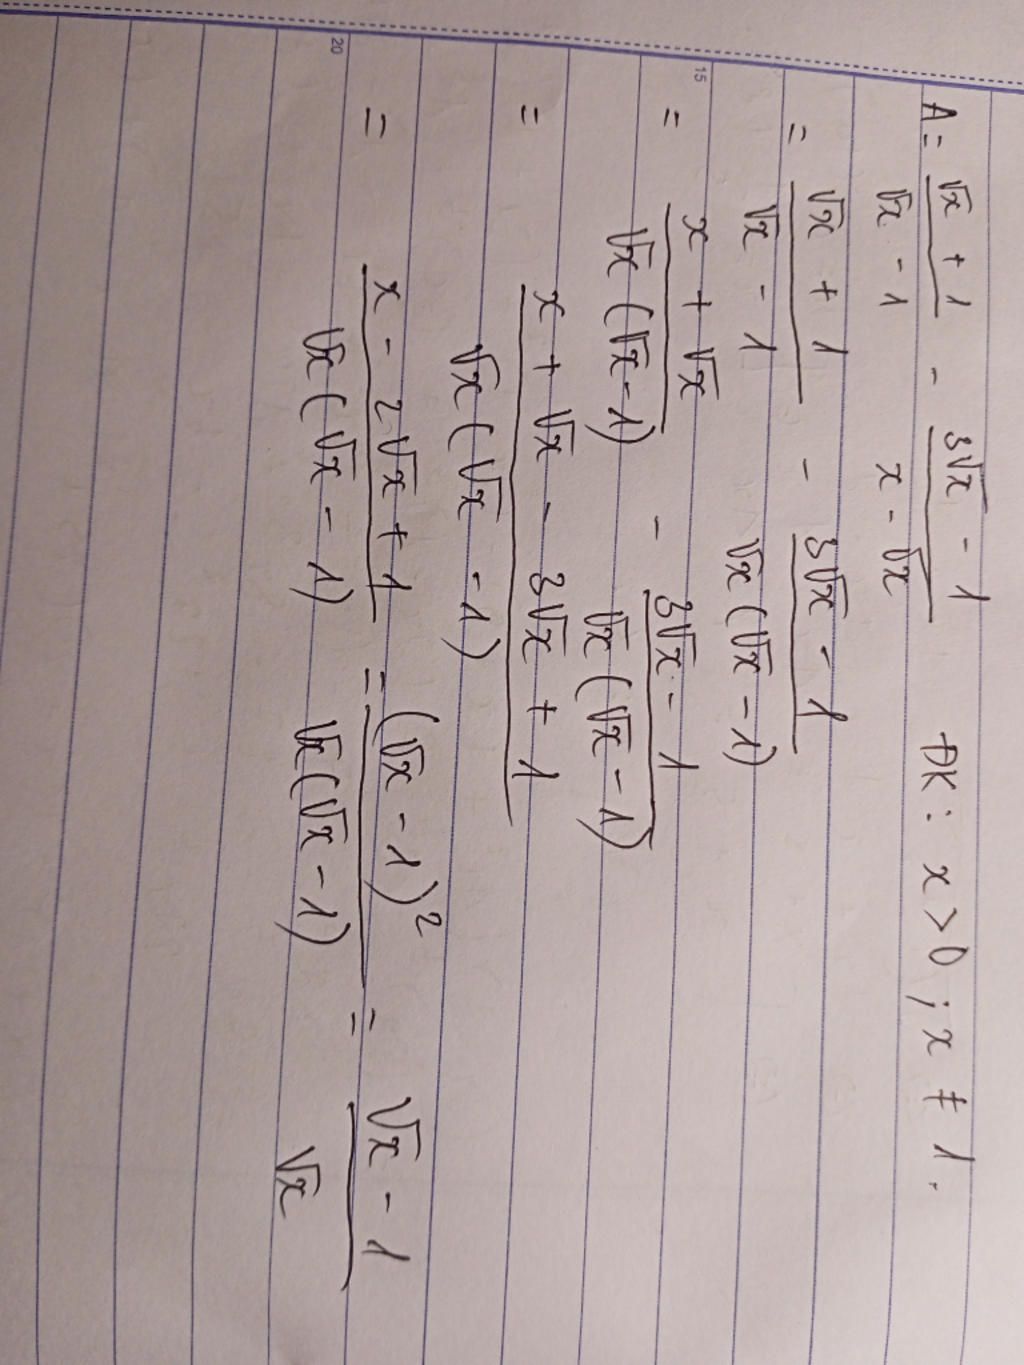 A = (√x + 1)/(√x - 1) - (3√x - 1)/(x - √x) ĐK: x > 0 ; x ≠ 1.
= (√x + 1)/(√x - 1) - (3√x - 1)/(√x (√x - 1))
15
= (x + √x)/(√x (√x - 1)) - (3√x - 1)/(√x (√x - 1))
= (x + √x - 3√x + 1)/(√x (√x - 1))
20
= (x - 2√x + 1)/(√x (√x - 1)) = (√x - 1)²/(√x (√x - 1)) = (√x - 1)/√x